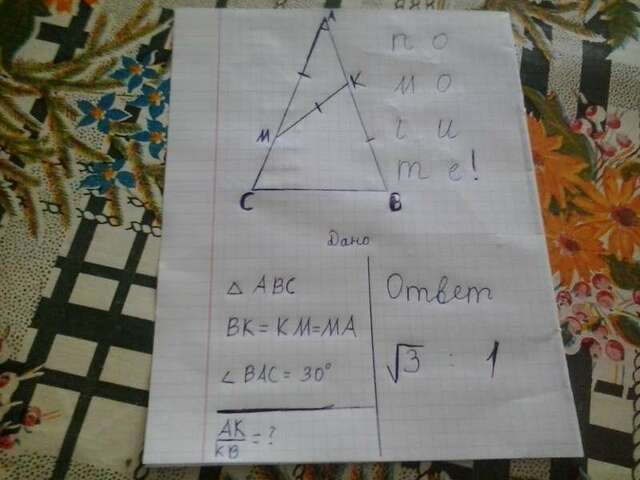 A
по
K
мо
M
ги
те!
C
B
Дано
△ ABC
BK = KM = MA
∠ BAC = 30°
AK/KB = ?
Ответ
√3 : 1